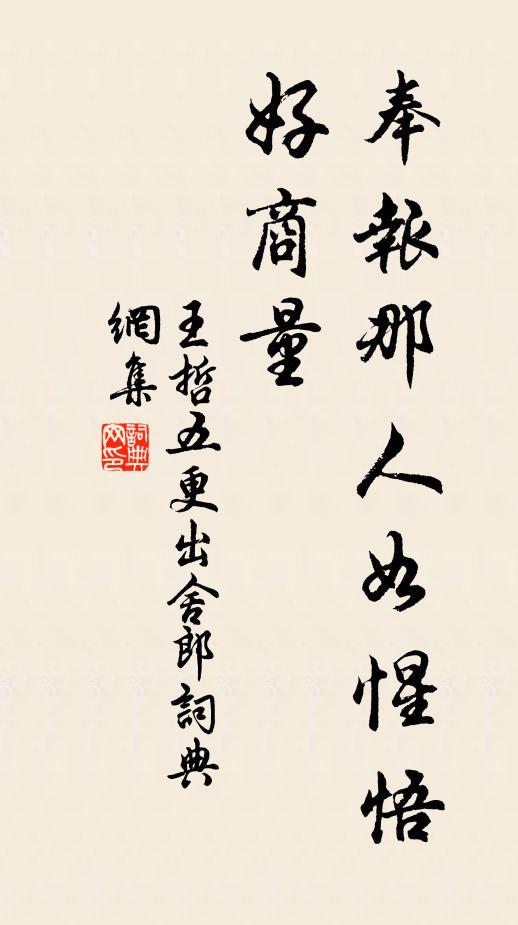 奉報那人如惺悟
好商量
王哲五更出舍郎詞典
網集
詞典
網印